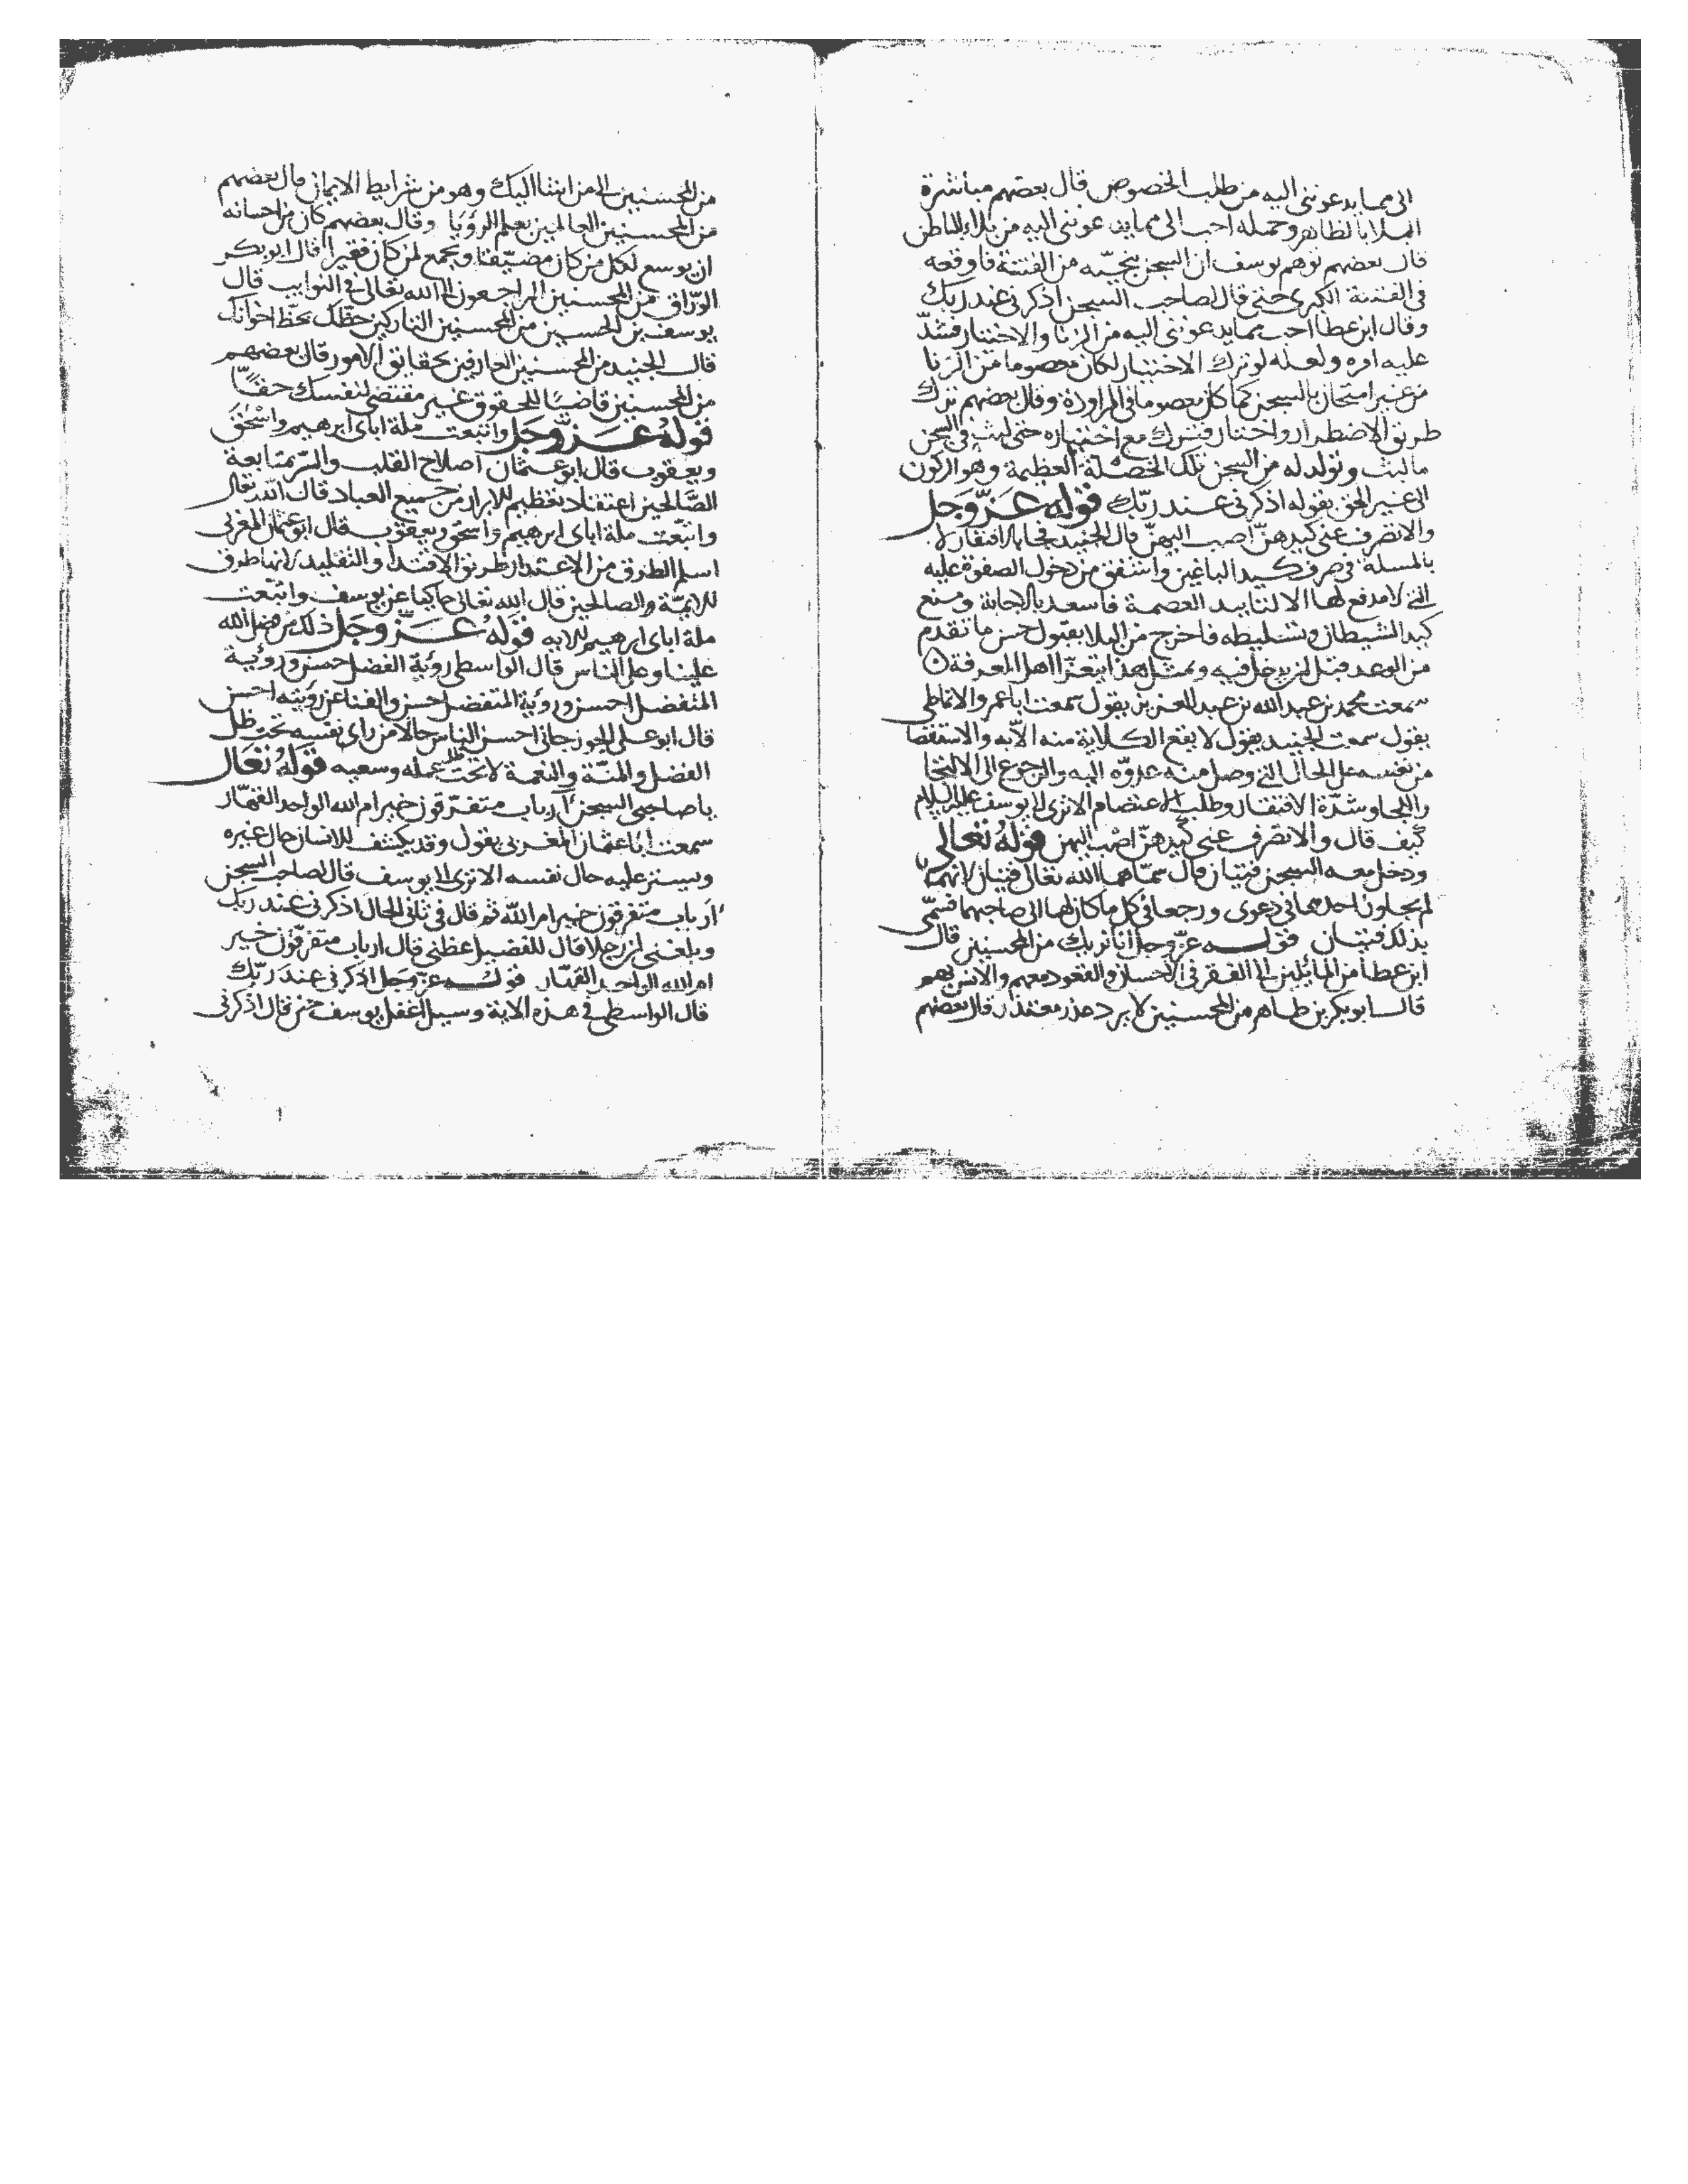 الى مما يدعونني اليه من طلب الخصوص قال بعضهم مباشرة
البلايا بالظاهر وحمله احب الى مما يدعونني اليه من بلاء الباطن
قال بعضهم توهم يوسف ان السجن ينجيه من الفتنة فاوقعه
في الفتنة الكبرى حتى قال لصاحب السجن اذكرني عند ربك
وقال ابن عطا احب مما يدعونني اليه من الزنا والاختيار فشدّ
عليه امره ولعله لو ترك الاختيار لكان معصوما من الزنا
من غير امتحان بالسجن كما كان معصوما في المراودة وقال بعضهم ترك
طريق الاضطرار واختار فترك مع اختياره حتى لبث في السجن
ما لبث وتولد له من السجن تلك الخصلة العظيمة وهو الركون
الى غير الحق بقوله اذكرني عند ربّك قوله عزّ وجل
والا تصرف عني كيدهنّ اصب اليهنّ قال الجنيد
بالمسلة في صرف كيد الباغين واشفق من دخول الصفوة عليه
التي لا مدفع لها الا لتاييد العصمة فاسعد بالاجابة ومنع
كيد الشيطان وتسليطه فاخرج من البلا بقبول حسن ما تقدم
من الوعد قبل ان يدخل فيه وبمثل هذا يتعزّا اهل المعرفة
سمعت محمد بن عبد الله بن عبد العزيز يقول سمعت ابا عمرو الانماطي
يقول سمعت الجنيد يقول لا يقع الكلاية منه الا به والاستقصا
من نفسه على الحال التي وصل منه عدوّه اليه والرجوع الى الالتجا
واللجا وشدّة الافتقار وطلب الاعتصام الا ترى الى يوسف عليه السلام
كيف قال والا تصرف عني كيدهنّ اصب اليهن قوله تعالى
ودخل معه السجن فتيان قال سمّاهما الله تعالى فتيان لانهما
لم يجاوز احدهما في دعوى ورجعا في كل ما كان لهما الى صاحبهما فسمّى
بذلك فتيان قوله عزّ وجل انا نريك من المحسنين قال
ابن عطا من المائلين الى الفقر في الاحسان والقعود معهم والانس بهم
قال ابو بكر بن طاهر من المحسنين لا يرد عذر معتذر قال بعضهم
من المحسنين الى من اتينا اليك وهو من شرايط الايمان قال بعضهم
من المحسنين العالمين بعلم الرؤيا وقال بعضهم كان من احسانه
ان يوسع لكل من كان مضيّقا ويجمع لمن كان فقيرا قال ابو بكر
الورّاق من المحسنين الراجعون الى الله تعالى في النوايب قال
يوسف بن الحسين من المحسنين التاركين حظك بحظ اخوانك
قال الجنيد من المحسنين العارفين بحقايق الامور قال بعضهم
من المحسنين قاضيًا للحقوق غير مقتضي لنفسك حقًّا
قوله عزّ وجل واتبعت ملة اباى ابرهيم واسحق
ويعقوب قال ابو عثمان اصلاح القلب والسرّ متابعة
الصّالحين اعتقاد تعظيم للابرار من جميع العباد قال الله تعالى
واتبعت ملة اباى ابرهيم واسحق ويعقوب قال ابو عثمان المغربي
اسلم الطرق من الاعتدار طريق الاقتدا والتقليد لانها طرق
للايمّة والصالحين قال الله تعالى حاكيا عن يوسف واتبّعت
ملة اباى ابرهيم الايه قوله عزّ وجل ذلك من فضل الله
علينا وعلى الناس قال الواسطى رؤية الفضل حسن ورؤية
المتفضل احسن ورؤية المتفضل احسن والفنا عن رؤيته احسن
قال ابو على الجوزجاني احسن الناس حالا من راى نفسه تحت ظل
الفضل والمنّة والنعمة لا تحت ظل عمله وسعيه قوله تعالى
يا صاحبي السجن اارباب متفرّقون خير ام الله الواحد القهّار
سمعت ابا عثمان المغربي يقول وقد يكشف للانسان حال غيره
ويستر عليه حال نفسه الا ترى الى يوسف قال لصاحب السجن
اارباب متفرقون خير ام الله ثم قال في ثاني الحال اذكرني عند ربك
وبلغني ان رجلا قال للفضيل عظني قال ارباب متفرّقون خير
ام الله الواحد القهّار قوله عزّ وجل اذكرني عند ربّك
قال الواسطى في هذه الاية وسيل اغفل يوسف حين قال اذكرني